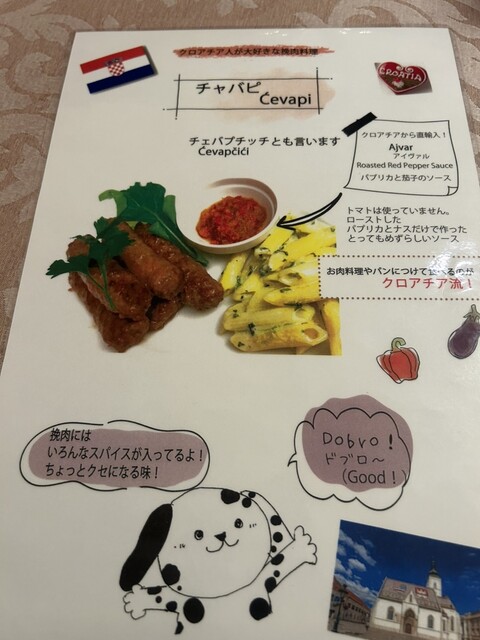 クロアチア人が大好きな挽肉料理
CROATIA
チャバピ
Ćevapi
チェバプチッチとも言います
Ćevapčići
クロアチアから直輸入！
Ajvar
アイヴァル
Roasted Red Pepper Sauce
パプリカと茄子のソース
トマトは使っていません。
ローストした
パプリカとナスだけで作った
とってもめずらしいソース
お肉料理やパンにつけて食べるのが
クロアチア流！
挽肉には
いろんなスパイスが入ってるよ！
ちょっとクセになる味！
Dobro！
ドブロ～
(Good！)